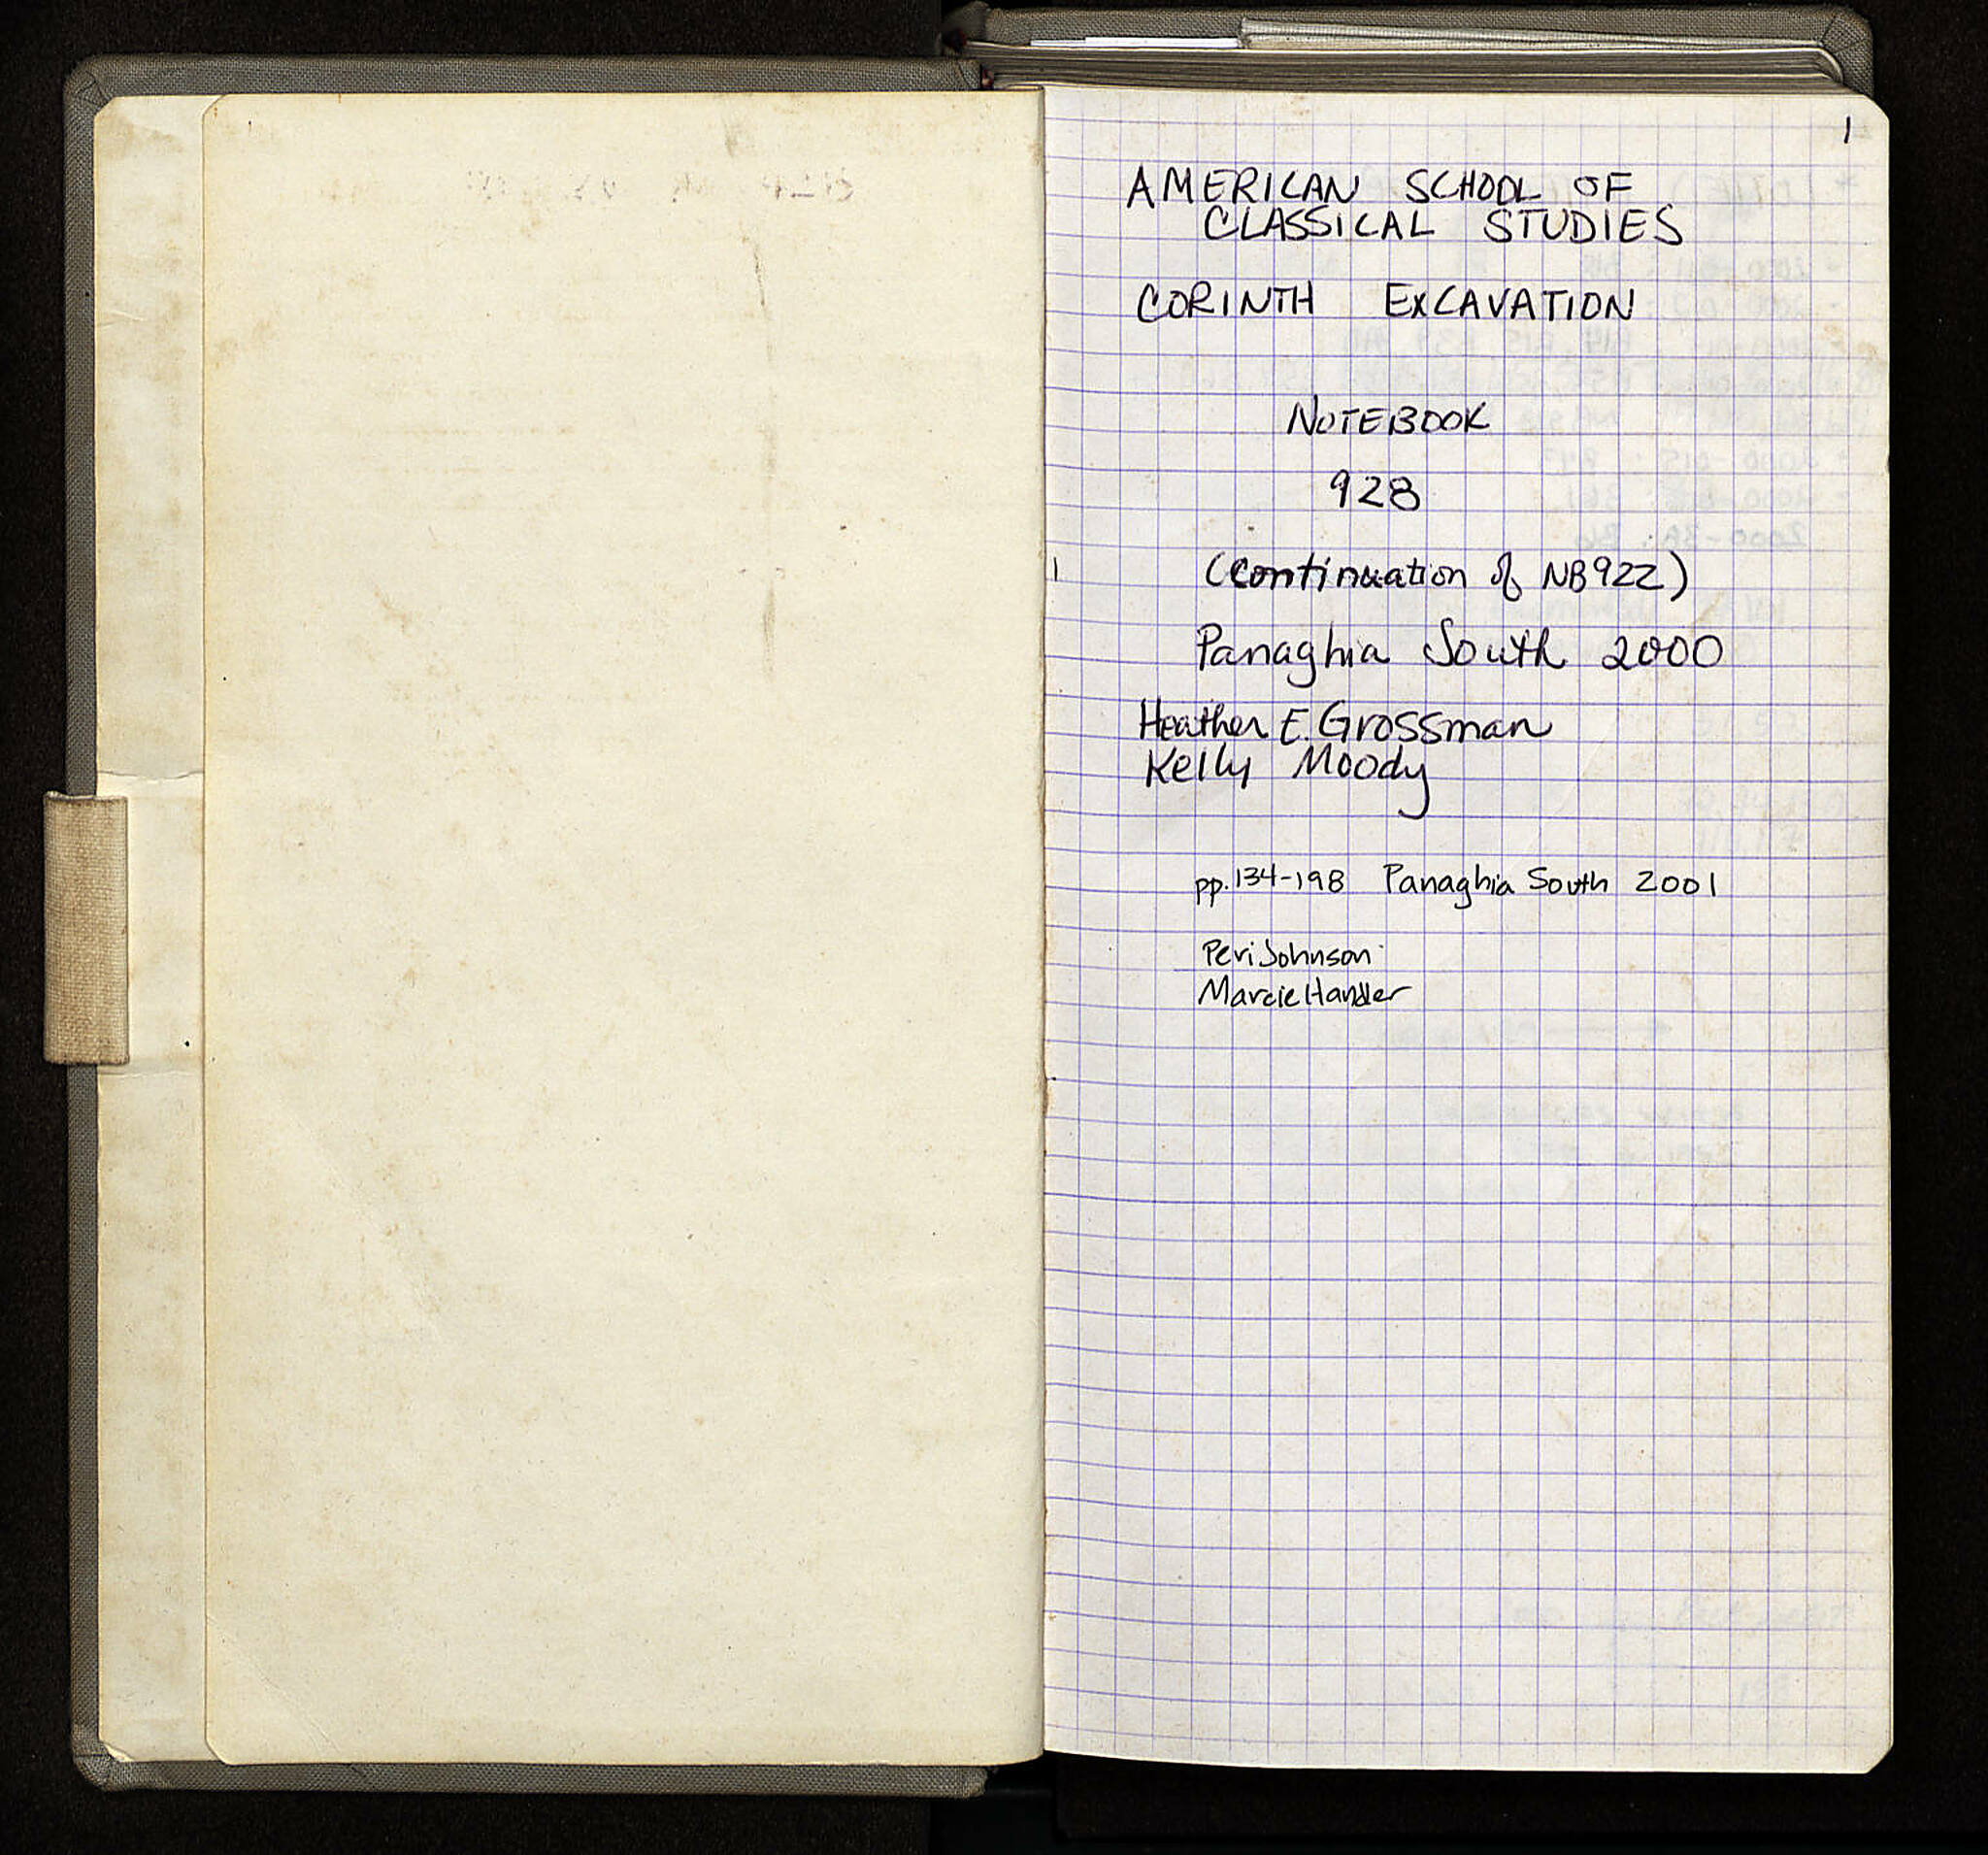 1
AMERICAN SCHOOL OF
CLASSICAL STUDIES
CORINTH EXCAVATION
NOTEBOOK
928
(continuation of NB922)
Panaghia South 2000
Heather E. Grossman
Kelly Moody
pp. 134-198 Panaghia South 2001
Peri Johnson
Marcie Handler